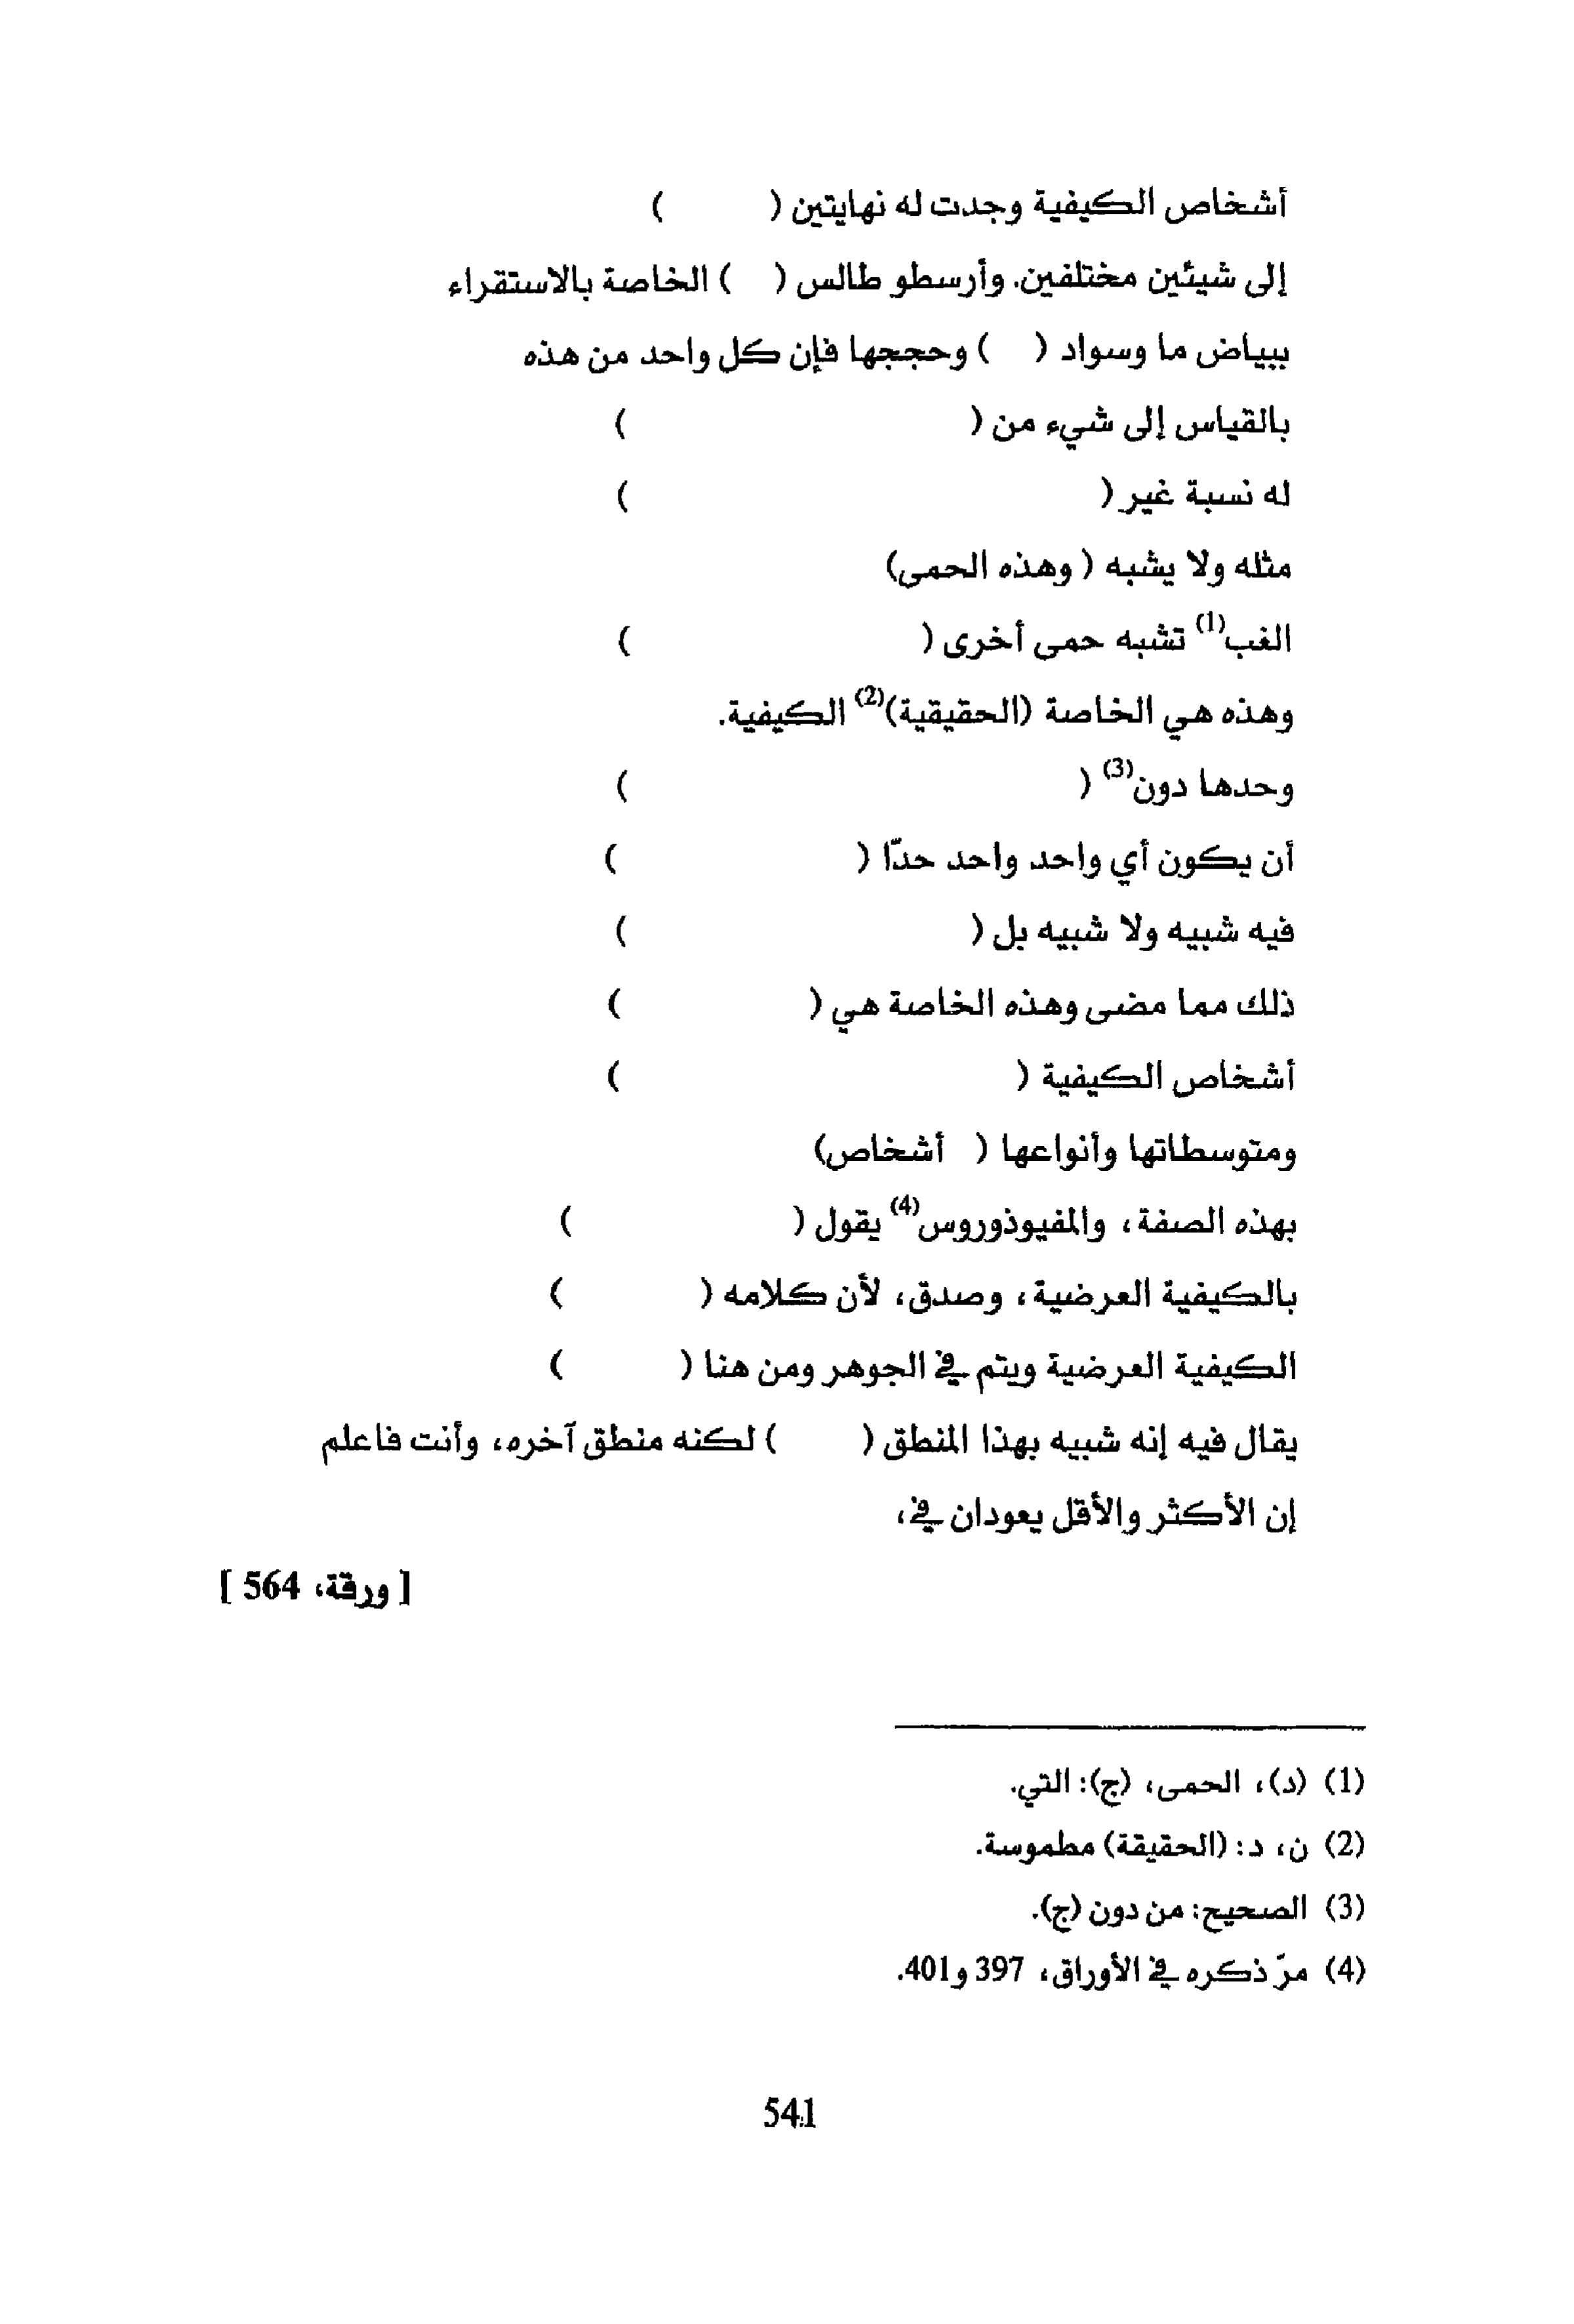 أشخاص الكيفية وجدت له نهايتين (        )
إلى شيئين مختلفين. وأرسطو طالس (    ) الخاصة بالاستقراء
ببياض ما وسواد (    ) وحججها فإن كل واحد من هذه
بالقياس إلى شيء من (        )
له نسبة غير (        )
مثله ولا يشبه ( وهذه الحمى)
الغب(1) تشبه حمى أخرى (        )
وهذه هي الخاصة (الحقيقية)(2) الكيفية.
وحدها دون(3) (        )
أن يكون أي واحد واحد حدّا (        )
فيه شبيه ولا شبيه بل (        )
ذلك مما مضى وهذه الخاصة هي (        )
أشخاص الكيفية (        )
ومتوسطاتها وأنواعها (   أشخاص)
بهذه الصفة، والمفيوذوروس(4) يقول (        )
بالكيفية العرضية، وصدق، لأن كلامه (        )
الكيفية العرضية ويتم في الجوهر ومن هنا (        )
يقال فيه إنه شبيه بهذا المنطق (        ) لكنه منطق آخره، وأنت فاعلم
إن الأكثر والأقل يعودان في،
[ ورقة، 564 ]
(1) (د)، الحمى، (ج): التي.
(2) ن، د: (الحقيقة) مطموسة.
(3) الصحيح: من دون (ج).
(4) مرّ ذكره في الأوراق، 397 و401.
541